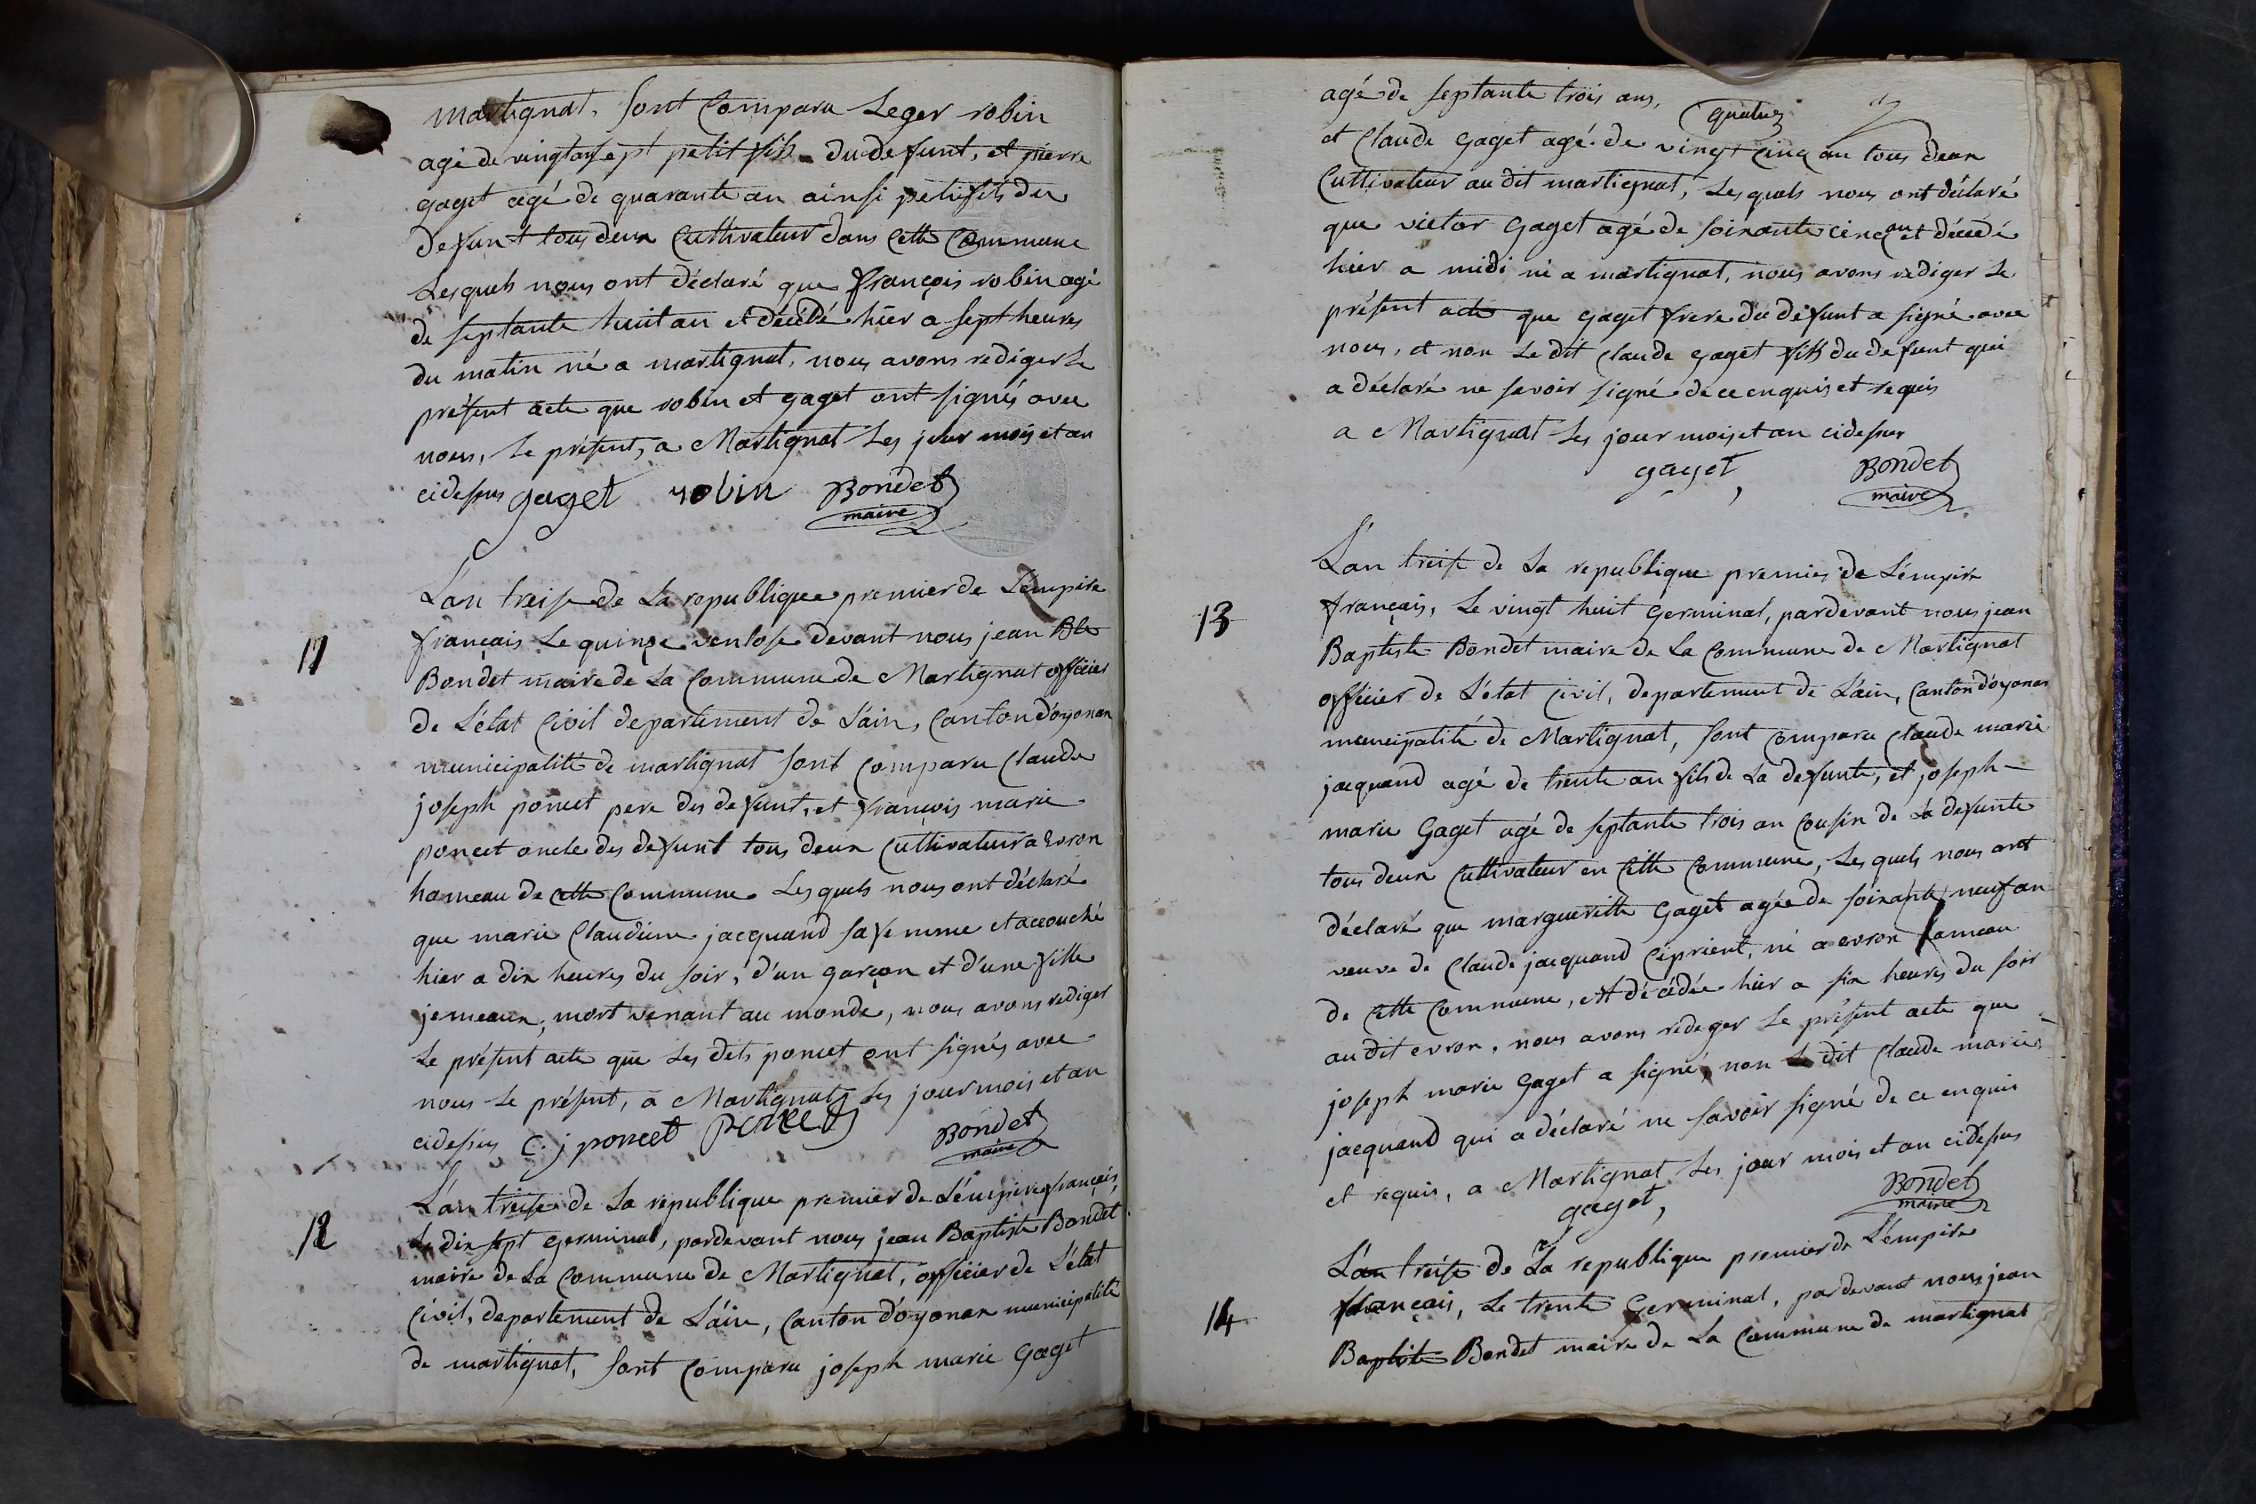 martignat, sont Comparu Leger robin
agé de vingt sept petit fils du defunt, et pierre
gaget agé de quarante an ainsi petit fils du
defunt tous deux Cultivateur dans Cette Commune
Lesquels nous ont déclaré que françois robin agé
de septante huit an et décédé hier a sept heures
du matin né a martignat, nous avons rediger Le
présent acte que robin et gaget ont signés avec
nous, Le présent, a Martignat Les jour mois et an
cidessus gaget robin Bondet
maire
11
L'an treise de La republique premier de L'empire
français Le quinze ventose devant nous jean Bte
Bondet maire de La Commune de Martignat officier
de L'état Civil departement de L'ain, Canton d'oyonan
municipalité de martignat sont Comparu Claude
joseph poncet pere des defunt, et françois marie
poncet oncle des defunt tous deux Cultivateur a Evron
hameau de Cette Commune Les quels nous ont déclaré
que marie Claudine jacquand sa femme et accouché
hier a dix heures du soir, d'un garçon et d'une fille
jemeaux, mort venant au monde, nous avons rediger
Le présent acte que Les dits poncet ont signés avec
nous Le présent, a Martignat Les jour mois et an
cidessus C. j poncet poncet Bondet
maire
12
L'an treise de La republique premier de L'empire français,
Le dix sept Germinal, pardevant nous jean Baptiste Bondet
maire de La Commune de Martignat, officier de L'état
Civil, departement de L'ain, Canton d'oyonan municipalité
de martignat, sont Comparu joseph marie Gaget
agé de septante trois ans,
quatre
et Claude Gaget agé de vingt cinq an tous deux
Cultivateur au dit martignat, Les quels nous ont déclaré
que victor Gaget agé de soixante cinq an et décédé
hier a midi né a martignat, nous avons rediger Le
présent acte que Gaget frere du defunt a signé avec
nous, et non Le dit Claude Gaget fils du defunt qui
a déclaré ne savoir signé de ce enquis et requis
a Martignat Les jour mois et an cidessus
gaget, Bondet
maire
13
L'an treise de La republique premier de L'empire
français, Le vingt huit Germinal, pardevant nous jean
Baptiste Bondet maire de La Commune de Martignat
officier de L'état Civil, departement de L'ain, Canton d'oyonan
municipalité de Martignat, sont Comparu Claude marie
jacquand agé de trente an fils de La defunte, et joseph
marie Gaget agé de septante trois an Cousin de La defunte
tous deux Cultivateur en Cette Commune, Les quels nous ont
déclaré que margueritte Gaget agée de soixante neuf an
veuve de Claude jacquand Ciprient, né a evron hameau
de Cette Commune, et décédée hier a six heures du soir
au dit evron, nous avons rediger Le présent acte que
joseph marie Gaget a signé, non Le dit Claude marie
jacquand qui a déclaré ne savoir signé de ce enquis
et requis, a Martignat Les jour mois et an cidessus
gaget, Bondet
maire
14
L'an treise de La republique premier de L'empire
français, Le trente Germinal, pardevant nous jean
Baptiste Bondet maire de La Commune de martignat